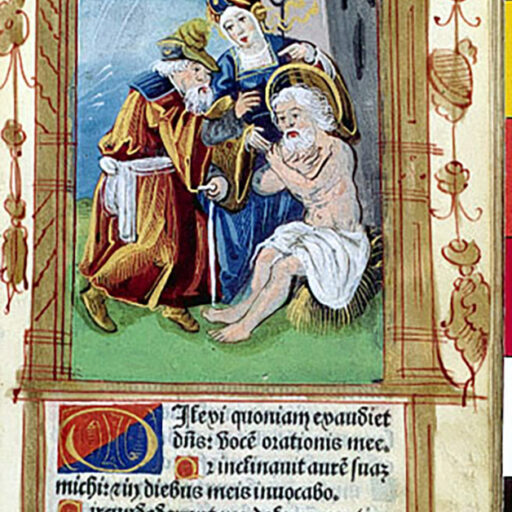 Dilexi quoniam exaudiet
dñs: Vocē orationis mee.
Qr inclinauit aurē suaꝫ
michi: ⁊ in diebus meis inuocabo.